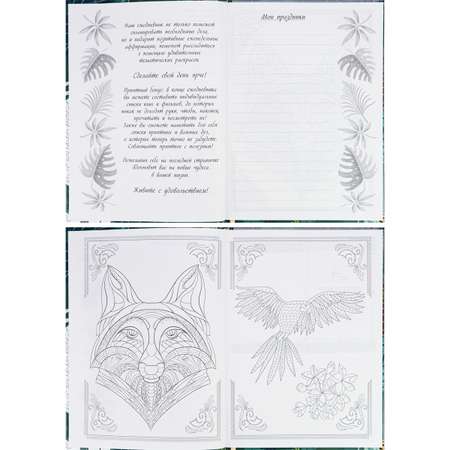 Наш ежедневник не только поможет
спланировать необходимые дела,
но и подарит позитивные ежедневные
аффирмации, поможет расслабиться
с помощью удивительных
тематических раскрасок.
Сделайте свой день ярче!
Приятный бонус: в конце ежедневника
вы можете составить индивидуальные
списки книг и фильмов, до которых
никак не доходят руки, чтобы, наконец,
прочитать и посмотреть их!
Также вы сможете наметить для себя
списки приятных и важных дел,
о которых теперь точно не забудете.
Совмещайте приятное с полезным!
на последней странице!
вас на новые чудеса
в вашей жизни.
Живите с удовольствием!
Мои праздники